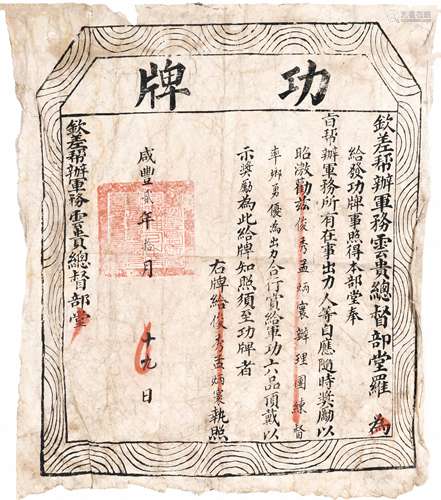 功牌
欽差帮辦軍務雲貴總督部堂羅 為
給發功牌事照得本部堂奉
旨帮辦軍務所有在事出力人等自應隨時獎勵以
昭激勸茲俊秀孟炳寰辦理團練督
率鄉勇優為出力合行賞給軍功六品頂戴以
示獎勵為此給牌知照須至功牌者
右牌給俊秀孟炳寰執照
咸豐貳年拾月十九日
欽差帮辦軍務雲貴總督部堂